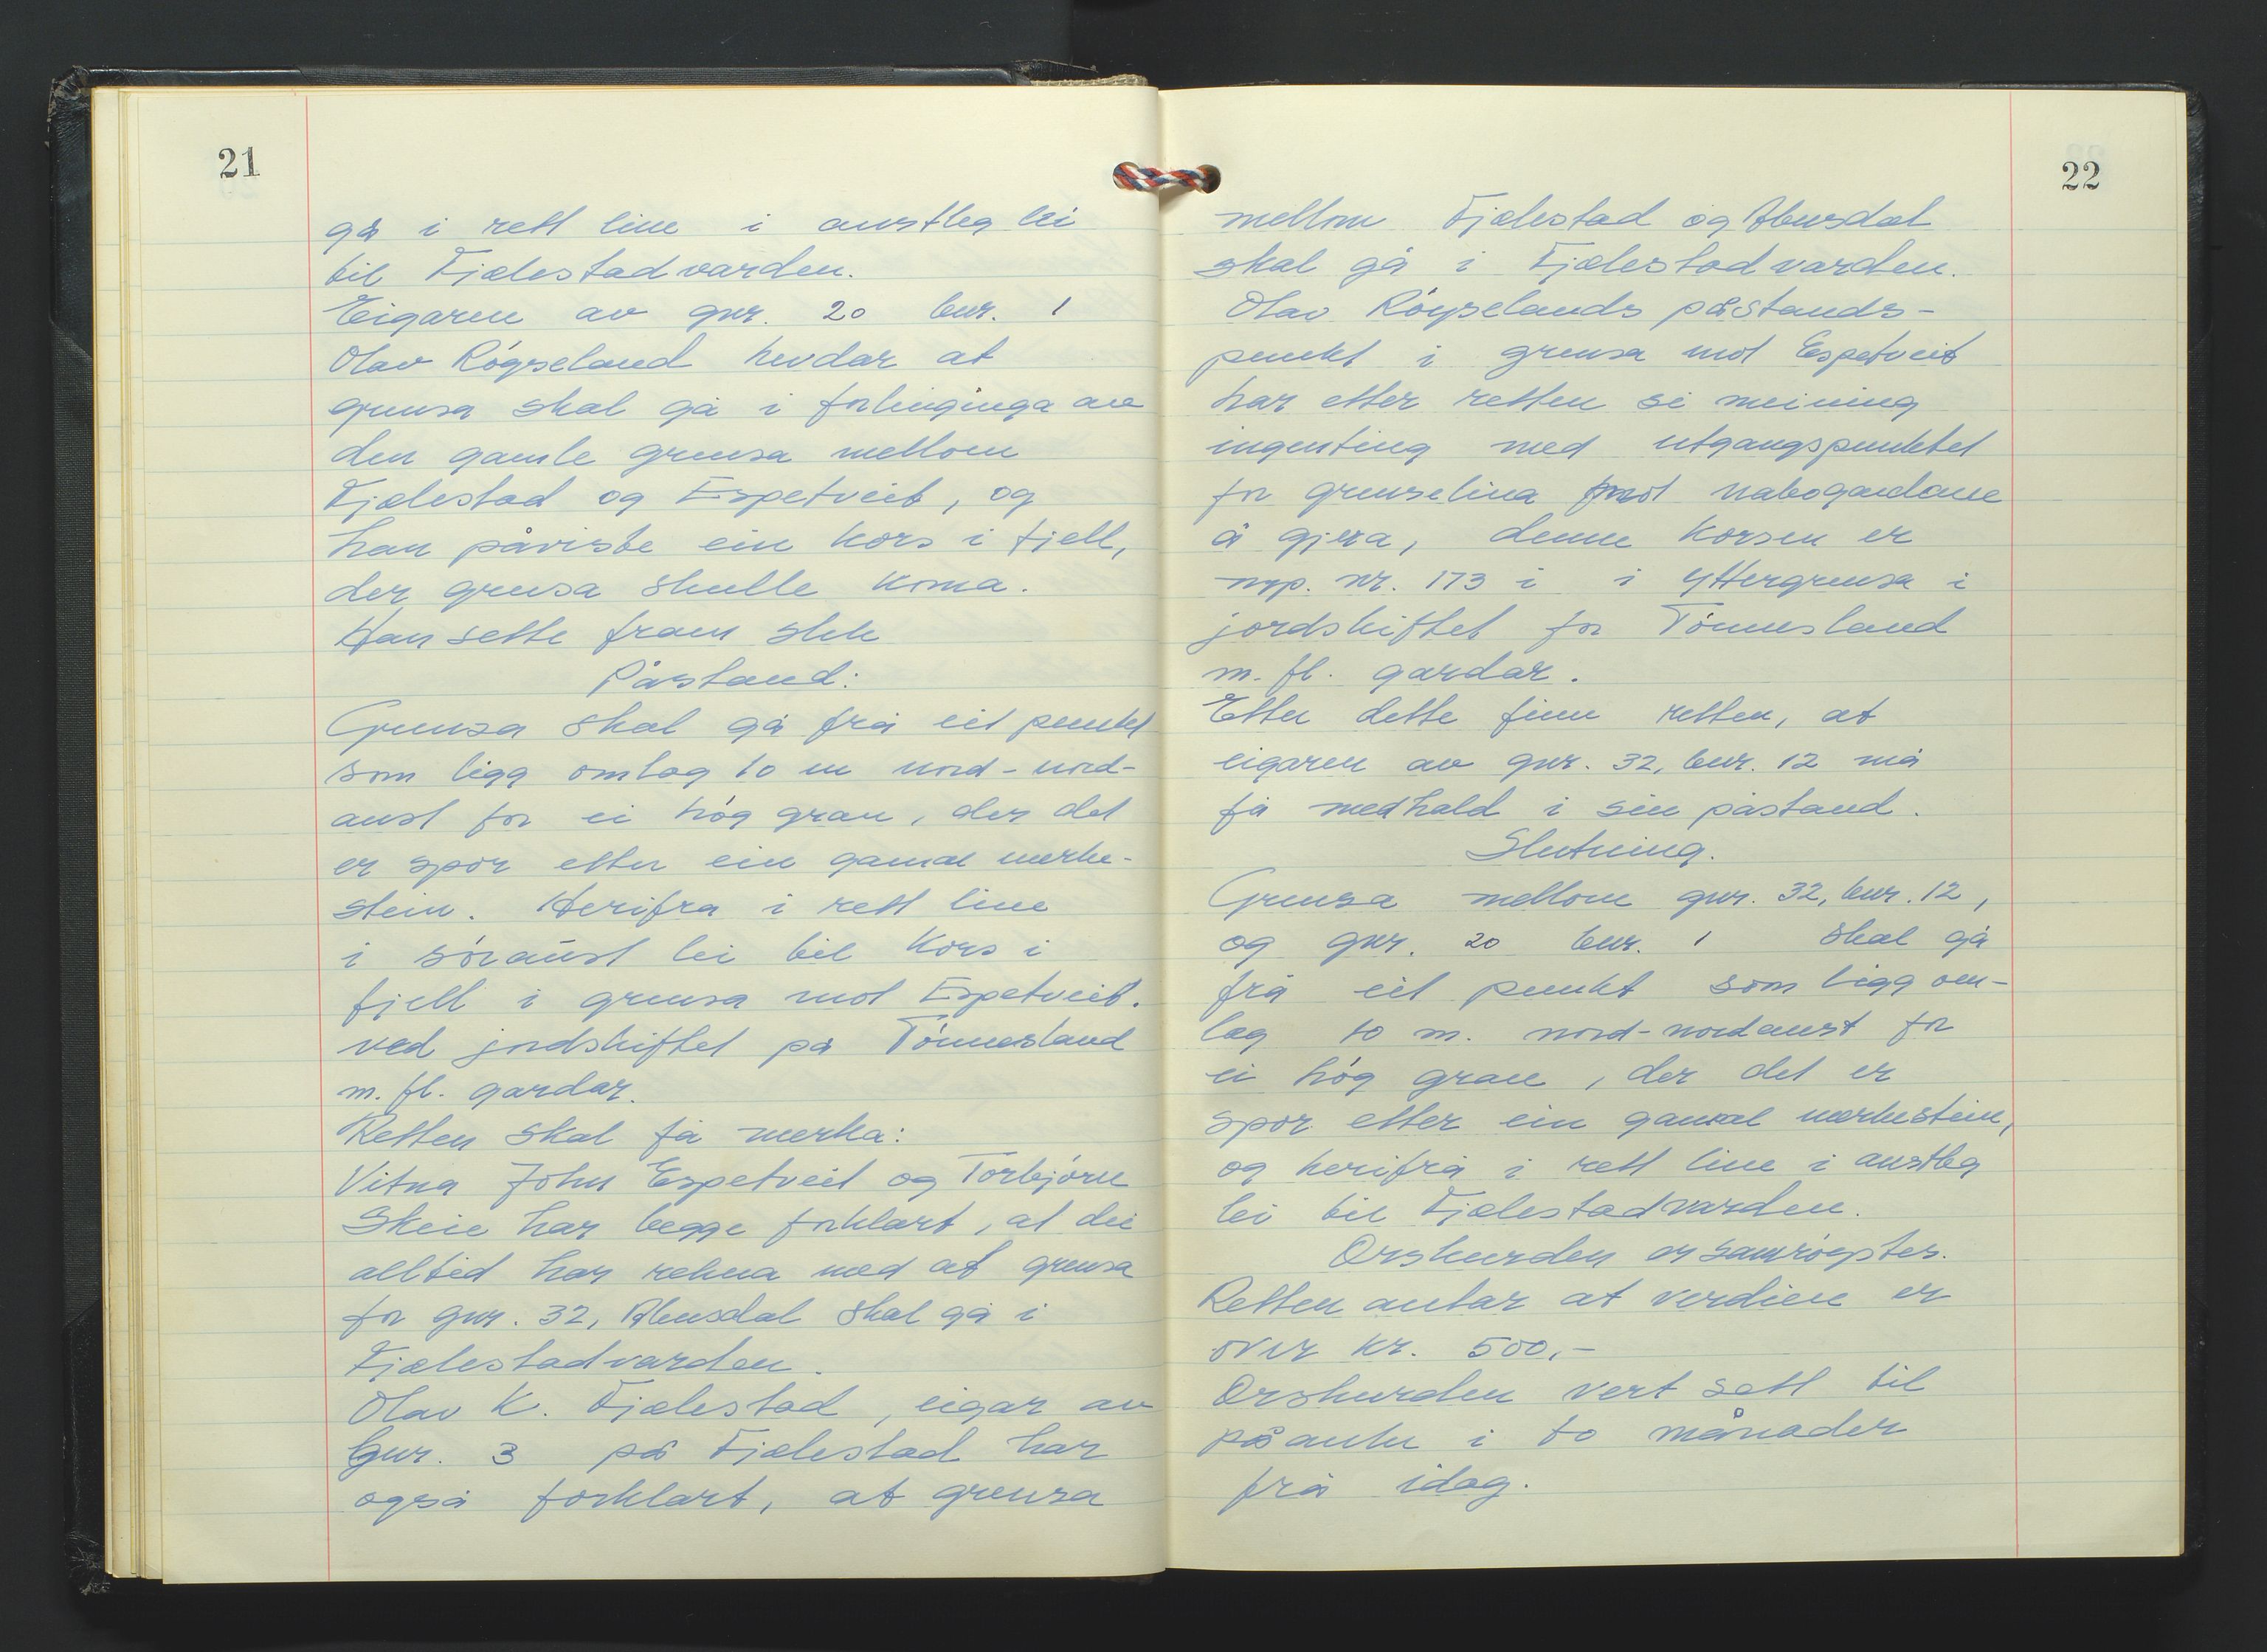 21
gå i rett line i austleg lei
til Fjælestadvarden.
Eigaren av gnr. 20 bnr. 1
Olav Röyseland hevdar at
grensa skal gå i forlenginga av
den gamle grensa mellom
Fjælestad og Espetveit, og
han påviste ein kors i fjell,
der grensa skulle koma.
Han sette fram slik
Påstand:
Grensa skal gå frå eit punkt
som ligg omlag 10 m nord-nord-
aust for ei hög gran, der det
er spor etter ein gamal merke-
stein. Herifra i rett line
i söraust lei til Kors i
fjell i grensa mot Espetveit.
ved jordskiftet på Tönnesland
m. fl. gardar.
Retten skal få merka:
Vitna John Espetveit og Torbjörn
Skeie har begge forklart, at dei
alltid har rekna med at grensa
for gnr. 32, Abusdal skal gå i
Fjælestadvarden.
Olav K. Fjælestad, eigar av
bnr. 3 på Fjælestad har
også forklart, at grensa
22
mellom Fjælestad og Abusdal
skal gå i Fjælestadvarden.
Olav Röyselands påstands-
punkt i grensa mot Espetveit
har etter retten si meining
ingenting med utgangspunktet
for grenselina mot nabogardane
å gjera, denne korsen er
mp. nr. 173 i i yttergrensa i
jordskiftet for Tönnesland
m. fl. gardar.
Etter dette finn retten, at
eigaren av gnr. 32, bnr. 12 må
få medhald i sin påstand.
Slutning.
Grensa mellom gnr. 32, bnr. 12,
og gnr. 20 bnr. 1 skal gå
frå eit punkt som ligg om-
lag 10 m. nord-nordaust for
ei hög gran, der det er
spor etter ein gamal merkestein,
og herifrå i rett line i austleg
lei til Fjælestadvarden.
Orskurden er samröystes.
Retten antar at verdien er
over kr. 500,-
Orskurden vert sett til
påanke i to månader
frå idag.